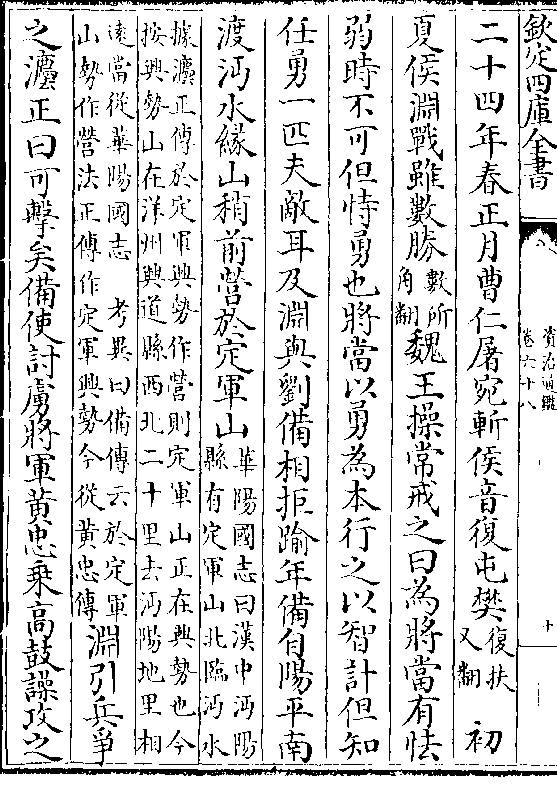 欽定四庫全書
資治通鑑
卷六十八
十
二十四年春正月曹仁屠宛斬侯音復屯樊復扶又翻初
夏侯淵戰雖數勝數所角翻魏王操常戒之曰為將當有怯
弱時不可但恃勇也將當以勇為本行之以智計但知
任勇一匹夫敵耳及淵與劉備相拒踰年備自陽平南
渡沔水緣山稍前營於定軍山華陽國志曰漢中沔陽
縣有定軍山北臨沔水
據灋正傳於定軍興勢作營則定軍山正在興勢也今
按興勢山在洋州興道縣西北二十里去沔陽地里相
遠當從華陽國志 考異曰備傳云於定軍
山勢作營法正傳作定軍興勢今從黃忠傳淵引兵爭
之灋正曰可擊矣備使討虜將軍黃忠乘高鼓譟攻之